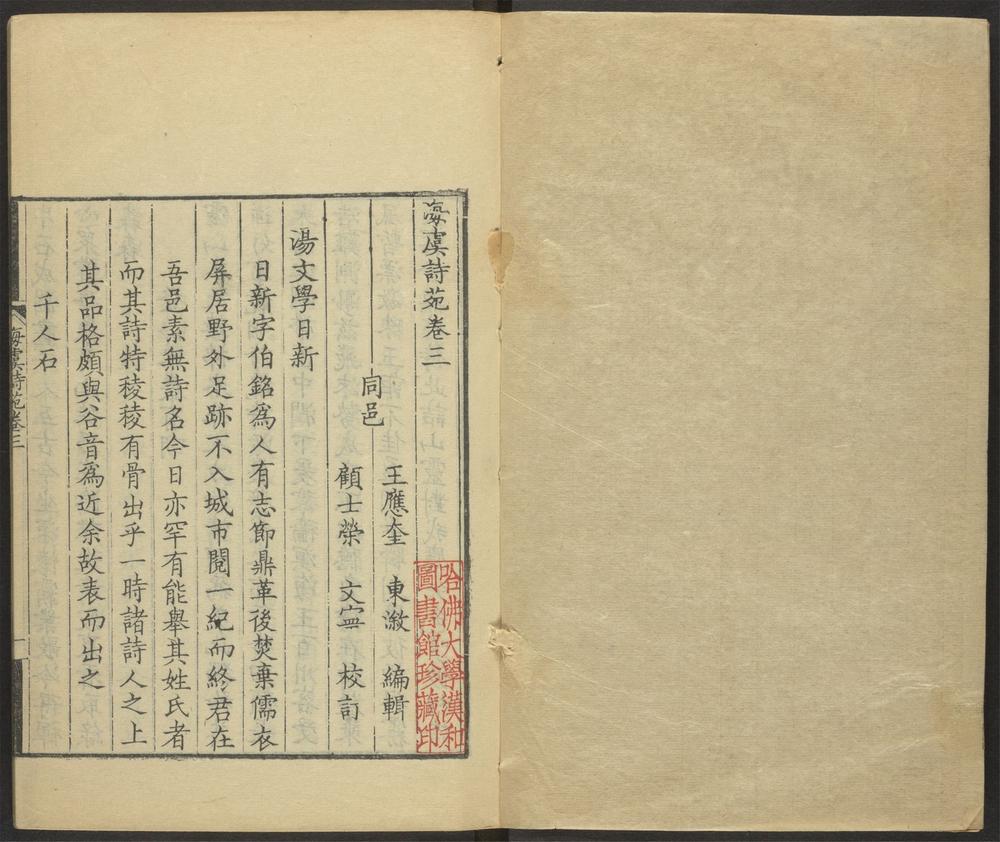 海虞詩苑卷三
同邑
王應奎 東漵 編輯
顧士榮 文寧 校訂
湯文學日新
日新字伯銘爲人有志節鼎革後焚棄儒衣
屏居野外足跡不入城市閱一紀而終君在
吾邑素無詩名今日亦罕有能舉其姓氏者
而其詩特稜稜有骨出乎一時諸詩人之上
其品格頗與谷音爲近余故表而出之
千人石
海虞詩苑卷三
一
哈佛大學漢和
圖書館珍藏印